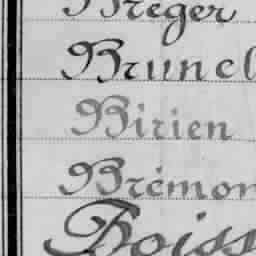 Breger
Brunel
Birien
Brémon
Boiss